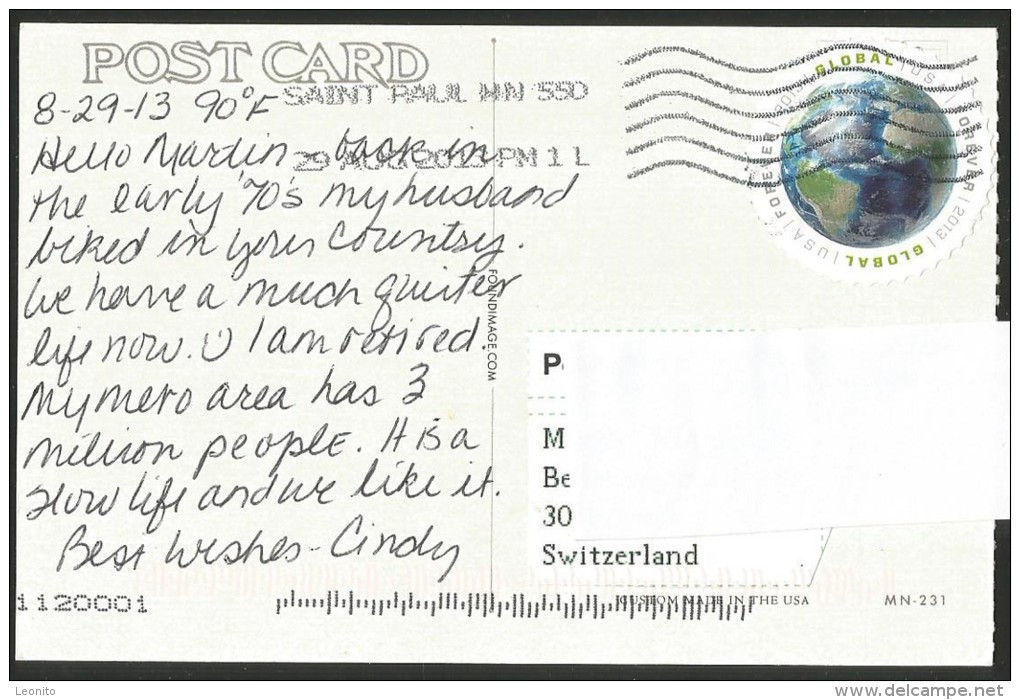 POST CARD
SAINT PAUL MN 55D
29 AUG 2013 PM 11 L
8-29-13 90°F
Hello Martin - back in
the early 70's my husband
biked in your country.
We have a much quieter
life now. I am retired.
My metro area has 3
million people. It is a
slow life and we like it.
Best Wishes - Cindy
FOUNDIMAGE.COM
GLOBAL | USA | FOREVER | 2013 | GLOBAL | USA | FOREVER
P
M
Be
30
Switzerland
1120001
CUSTOM MADE IN THE USA
MN-231
Leonito
www.delcampe.net